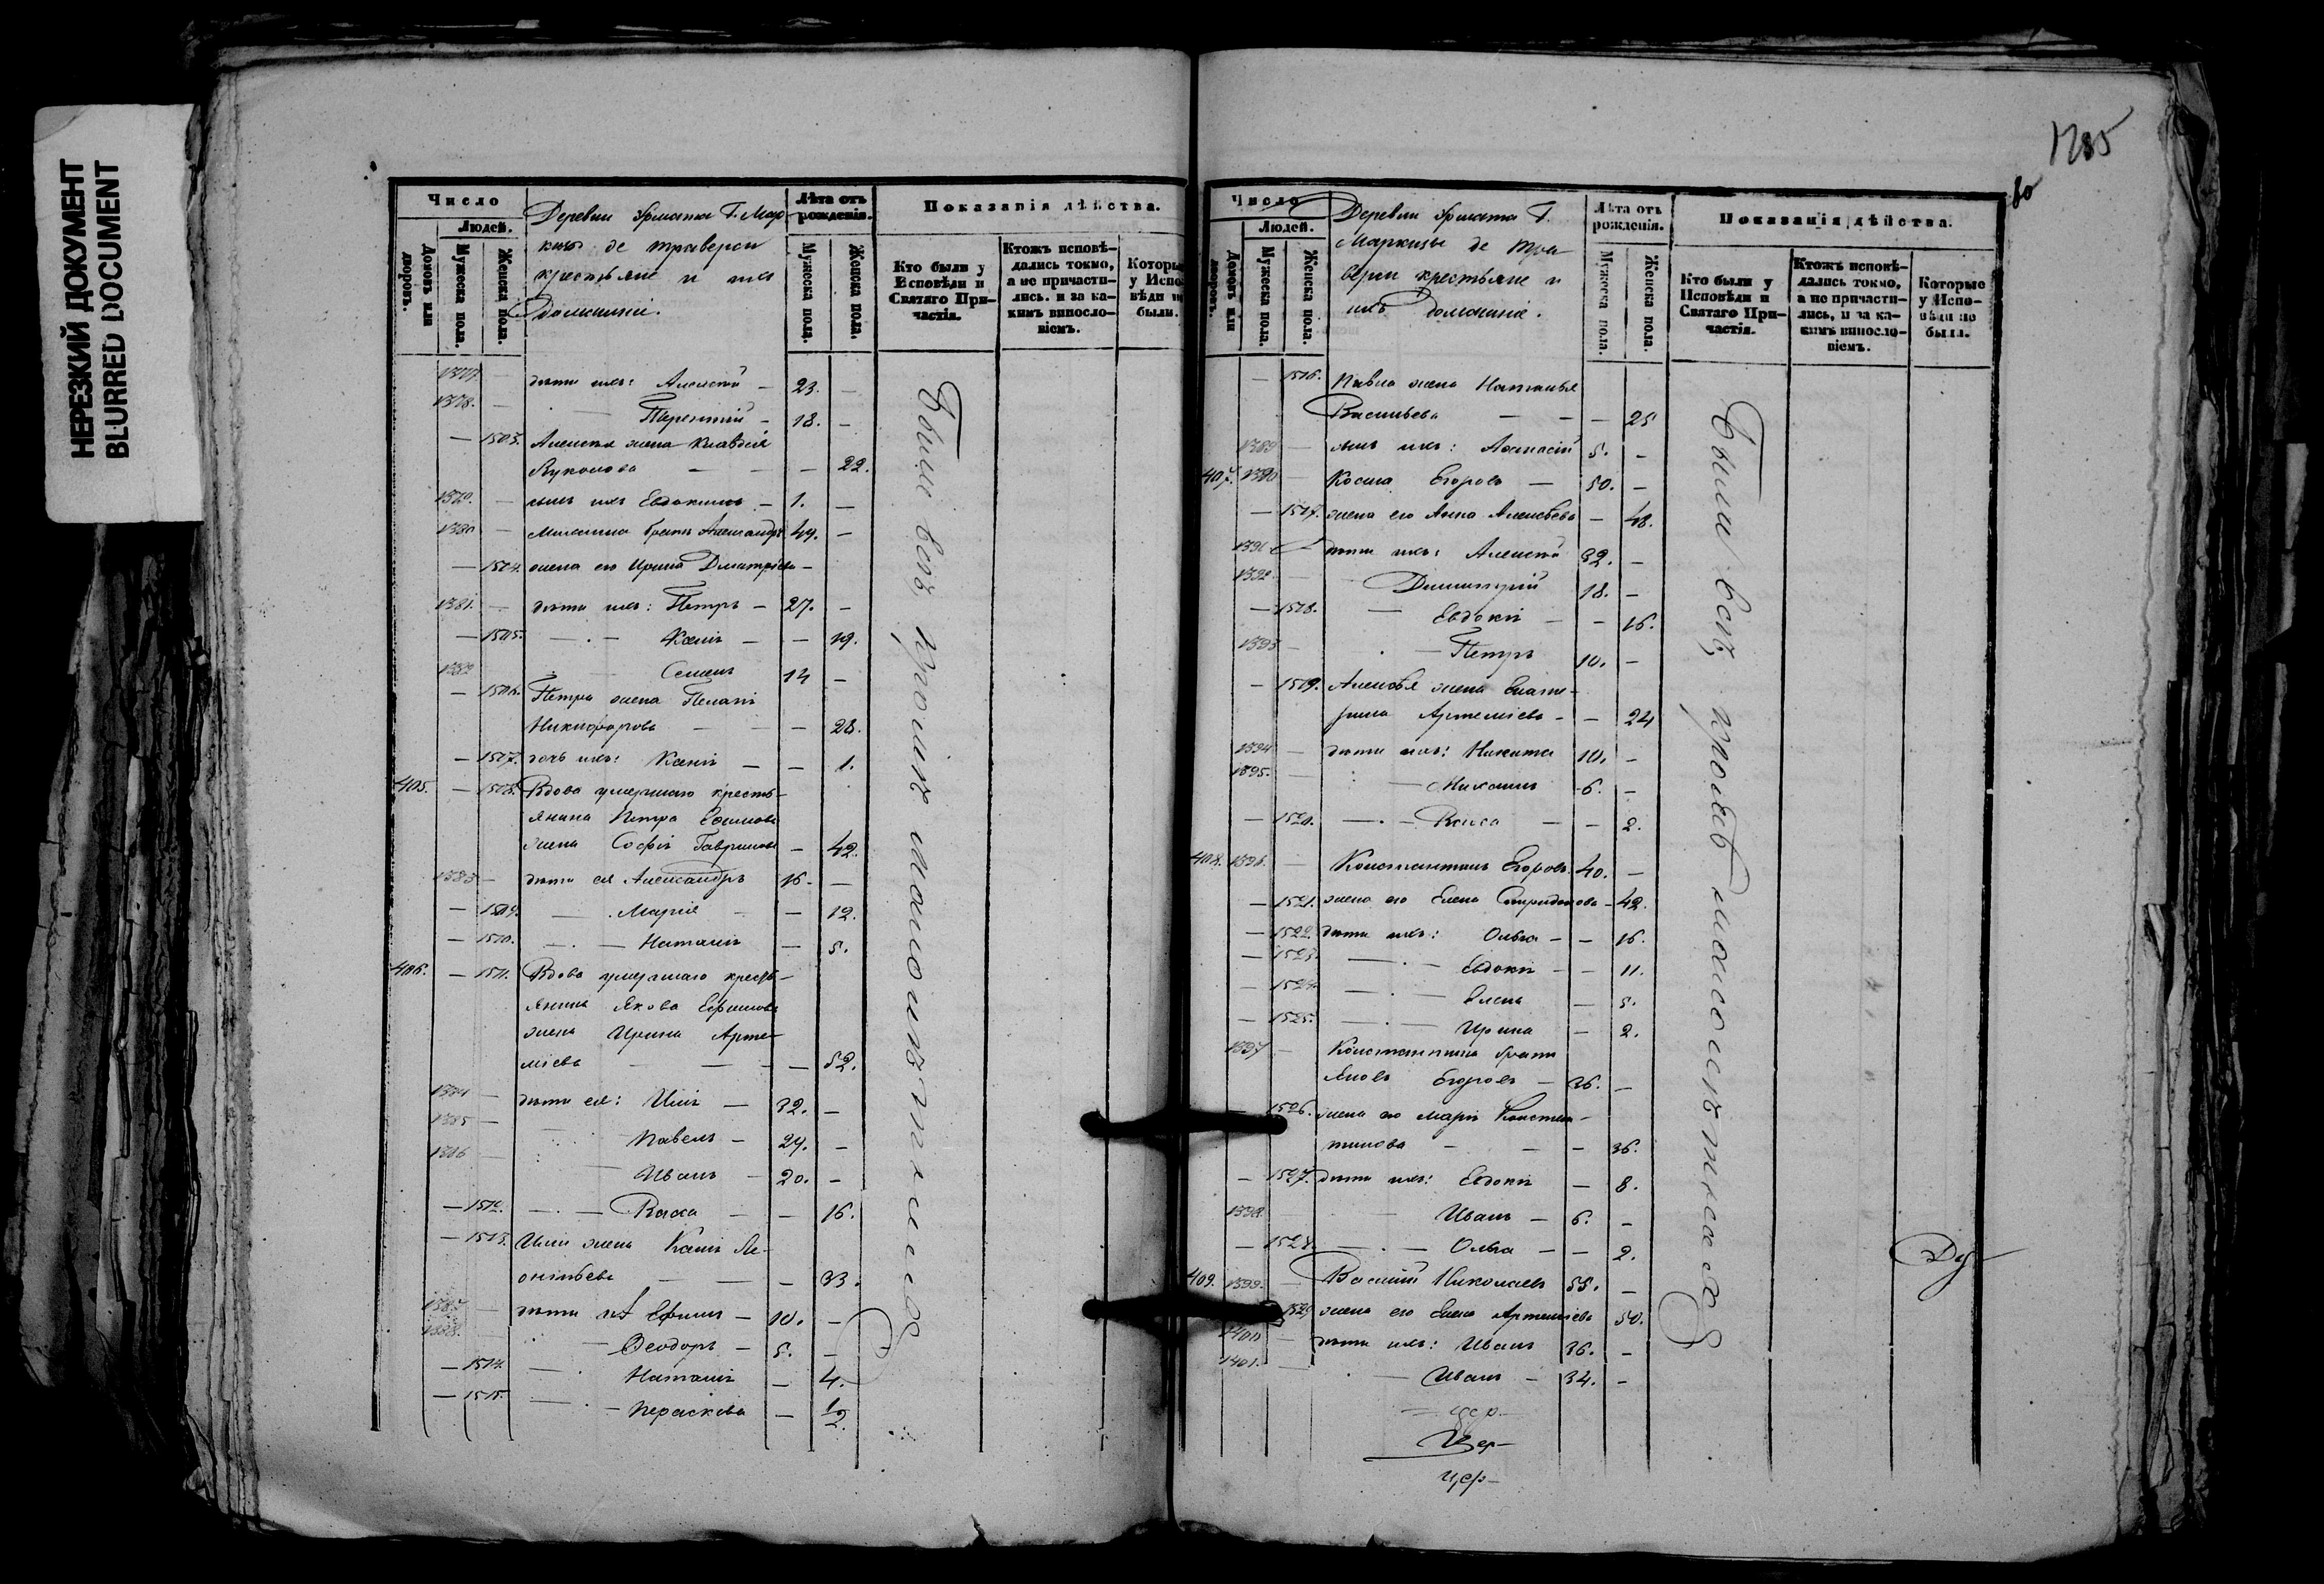 НЕРЕЗКИЙ ДОКУМЕНТ
BLURRED DOCUMENT
Число
Людей.
Домовъ или дворовъ.
Мужеска пола.
Женска пола.
Деревни Г. Мар
кизы де Траверси
крестьяне и ихъ
Домашніе.
Лѣта отъ рожденія.
Мужеска пола.
Женска пола.
Показанія дѣйства.
Кто были у Исповѣди и Святаго Причастія.
Ктожъ исповѣдались токмо, а не причастились. и за какимъ винословіемъ.
Которы у Испо вѣди н были.
1377 — дѣти ихъ: Алексѣй — 23. —
1378. — Терентій — 18. —
— 1503. Алексѣя жена Клавдія
— — 22.
1379. — сынъ ихъ Евдокимъ — 1. —
1380 — братъ Александръ 49. —
— 1504. жена его Ирина Дмитріева —
1381. — дѣти ихъ: Петръ — 27. —
— 1505. — . — — — 19.
1382 Семенъ 14 —
— 1506. Петра жена Пелагія
Никифорова — — 28.
— 1507. дочь ихъ: — — 1.
405. — 1508. Вдова умершаго кресть-
янина Петра Ефимова
жена Софія Гаврилова — 42.
1383 — дѣти ея Александръ 16. —
— 1509. — . Марія — — 12.
— 1510. — . — Наталія — 5.
406. — 1511. Вдова умершаго кресть-
янина Якова Ефимова
жена Ирина Арте-
міева — — — 52.
1384 — дѣти ея: Илія — 32. —
1385 — Павелъ — 24. —
1386 — Иванъ — 20. —
— 1512. — . — Васса — — 16.
— 1513. Иліи жена Ле-
онтьева — — — 33.
1387 — дѣти ихъ Ефимъ — 10. —
1388. — Ѳеодоръ — 5. —
— 1514. — Наталія — 4.
— 1515. — . — Параскева — 1/2
Были всѣ кромѣ малолѣтнихъ
1285
80
Число
Людей.
Домовъ или дворовъ.
Мужеска пола.
Женска пола.
Деревни Г.
Маркизы де Тра
верси крестьяне и
ихъ домашніе.
Лѣта отъ рожденія.
Мужеска пола.
Женска пола.
Показанія дѣйства.
Кто были у Исповѣди и Святаго Причастія.
Ктожъ исповѣдались токмо, а не причастились, и за какимъ винословіемъ.
Которые у Исповѣди не были.
— 1516. Павла жена Наталья
Васильева — — — 25
1389 — сынъ ихъ: Афанасій 5. —
407. 1390 — Косма Егоровъ — 50. —
— 1517. жена его Анна Алексѣева — 48.
1391 — дѣти ихъ: Алексѣй 32. —
1392 — Димитрій 18. —
— 1518. — Евдокія — — 16.
1393 — . — Петръ 10. —
— 1519. Алексѣя жена Екате-
рина Артеміева — — 24
1394 — дѣти ихъ: Никита 10. —
1395. — : — Михаилъ 6. —
— 1520. — . — Васса — — 2.
408. 1396. — Константинъ Егоровъ 40. —
— 1521. жена его Елена Спиридонова — 42.
— 1522. дѣти ихъ: Ольга — — 16.
— 1523. — . — Евдокія — — 11.
— 1524. — . — Елена — 5.
— 1525. — . — Ирина — 2.
1397 — Константина братъ
Яковъ Егоровъ — 36. —
— 1526. жена его Марія Констан-
тинова — — — 36.
— 1527. дѣти ихъ: Евдокія — 8.
1398. — Иванъ — 6. —
— 1528. — . — Ольга — — 2.
409. 1399. — Василій Николаевъ 55. —
1529 жена его Елена Артеміева 50.
1400 — дѣти ихъ: Иванъ 36. —
1401. — Иванъ — 34. —
Были всѣ, кромѣ малолѣтнихъ